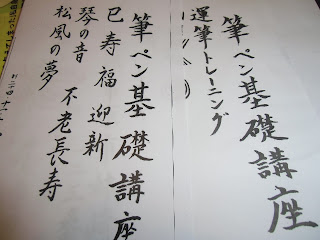 筆ペン基礎講座
運筆トレーニング
筆ペン基礎講座
巳寿福迎新
琴の音
不老長寿
松風の夢